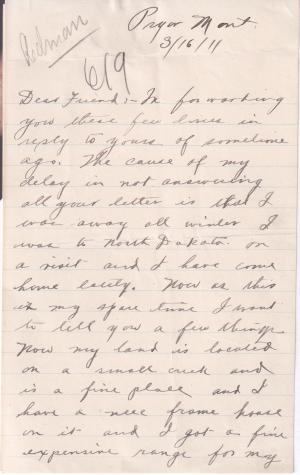 Pryor Mont.
3/16/11
Redman
619
Dear Friend:- In forwarding
you these few lines in
reply to yours of sometime
ago. The cause of my
delay in not answering
all your letter is that I
was away all winter I
was to North Dakota. on
a visit and I have come
home lately. Now as this
is my spare time I want
to tell you a few things
Now my land is located
on a small creek and
is a fine place and I
have a nice frame house
on it and I got a fine
expensive range for my